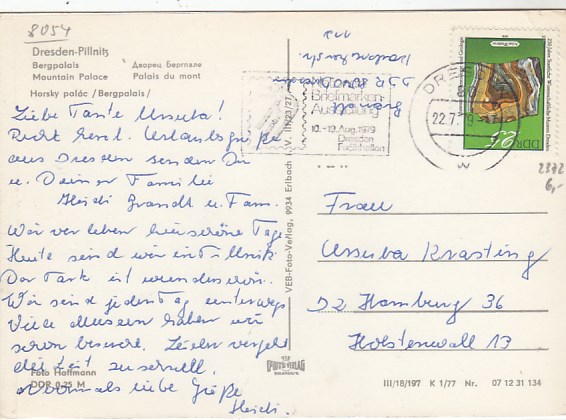 8054
Dresden-Pillnitz
Bergpalais Дворец Бергпале
Mountain Palace Palais du mont
Horsky palác /Bergpalais/
Liebe Tante Ursula!
Recht herzl. Urlaubsgrüße
aus Dresden senden Dir
u. Deiner Familie
Heidi Brandt u. Fam.
Wir verleben hier schöne Tage
Heute sind wir in Pillnitz
Der Park ist wunderschön.
Wir sind jeden Tag unterwegs
Viele Museen haben wir
schon besucht. Leider vergeht
die Zeit zu schnell.
Nochmals liebe Grüße
Heidi.
Foto Hoffmann
DDR 0,25 M
VEB-Foto-Verlag, 9934 Erlbach i. V.
Briefmarken-
Ausstellung
10.-19. Aug. 1979
Dresden
Fucikhallen
DRESDEN
22.7.79
DDR
2372
6,-
Frau
Ursula Krasting
D2 Hamburg 36
Holstenwall 13
III/18/197 K 1/77 Nr. 07 12 31 134